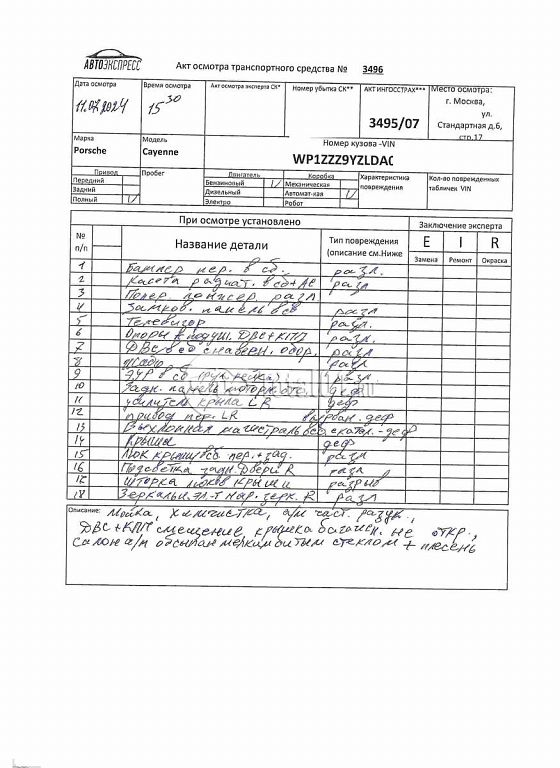 АВТОЭКСПРЕСС
Акт осмотра транспортного средства № 3496
Дата осмотра
11.07.2024
Время осмотра
15 30
Акт осмотра эксперта СК*
Номер убытка СК**
АКТ ИНГОССТРАХ***
3495/07
Место осмотра:
г. Москва,
ул.
Стандартная д.6,
стр.17
Марка
Porsche
Модель
Cayenne
Номер кузова -VIN
WP1ZZZ9YZLDAC
Привод
Передний
Задний
Полный V
Пробег
Двигатель
Бензиновый V
Дизельный
Электро
Коробка
Механическая
Автомат-кая V
Робот
Характеристика
повреждения
Кол-во поврежденных
табличек VIN
При осмотре установлено
Заключение эксперта
№
п/п
Название детали
Тип повреждения
(описание см.Ниже
E I R
Замена Ремонт Окраска
1 Бампер пер. в сб. разл.
2 Касета радиат. в сб+АС разл
3 Попер. лонжер. разл
4 Замков. панель всб разл
5 Телевизор разл.
6 Опоры и подуш. ДВС+КПП разл.
7 ДВС в сб с навесн. обор. разл
8 разл
9 ЭУР в сб (рул рейка) разл
10 Задн. панель моторн. отс. деф
11 усилитель крыла LR деф
12 привод пер. LR вырван. деф
13 Выхлопная магистраль всб с катал.-деф
14 Крыша деф
15 Люк крыши всб пер.+зад. разл
16 Подсветка задн. двери R разл
17 шторка люков крыши разрыв
18 Зеркальн. эл-т нар. зерк. R разл
Описание: Мойка, химчистка, а/м част. разук.,
ДВС+КПП смещение, крышка багажн. не откр.,
салон а/м обсыпан мелким битым стеклом + плесень